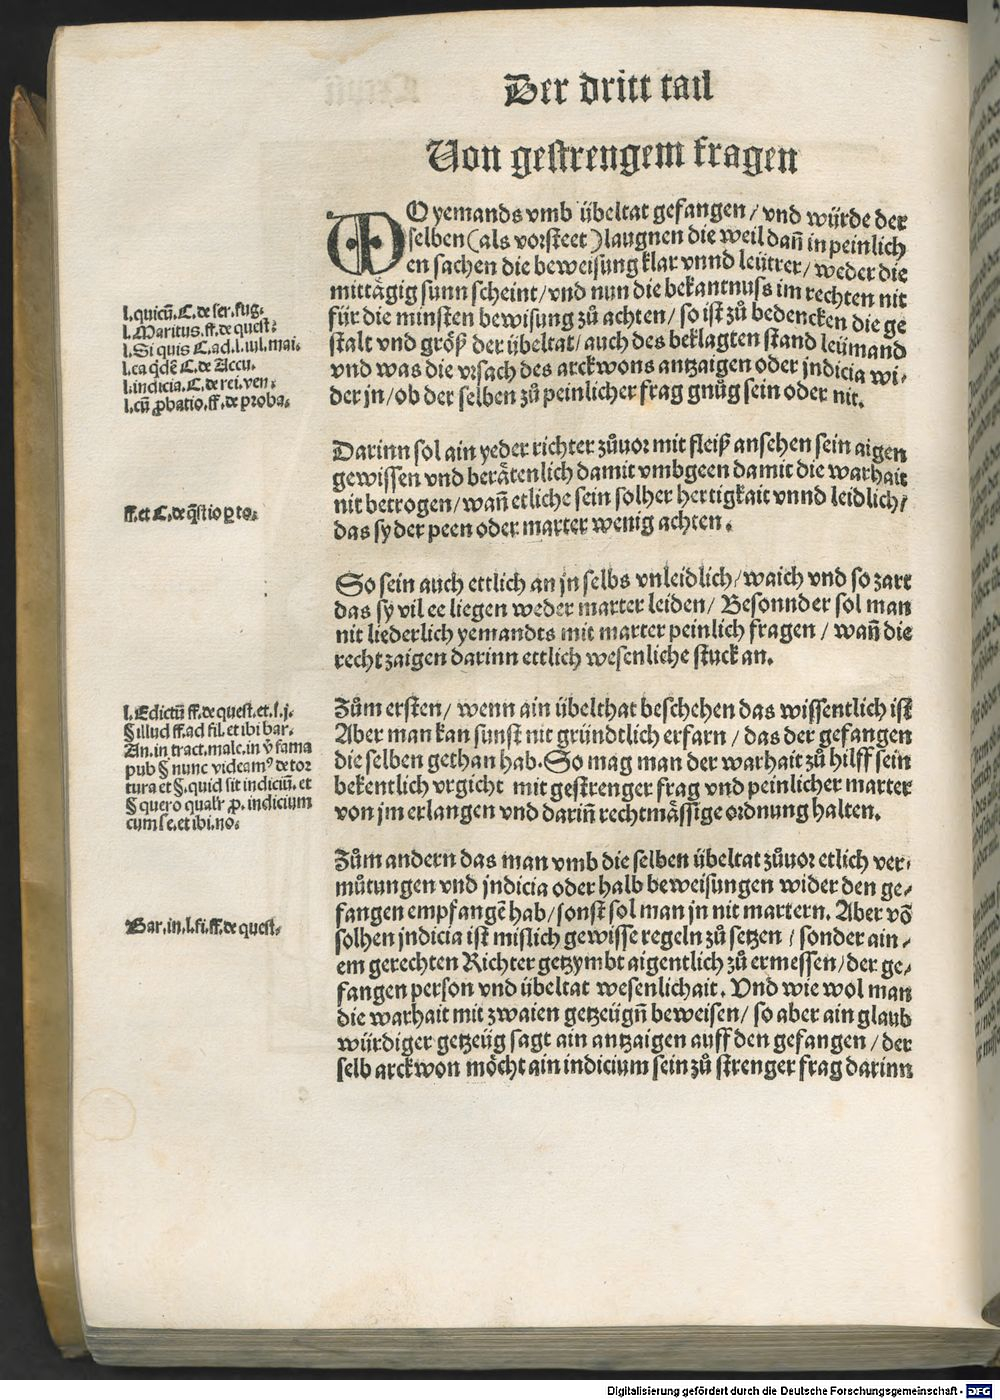 Der dritt tail
Von gestrengem fragen
WO yemands vmb übeltat gefangen / vnd würde der
selben (als vorsteet) laugnen die weil dañ in peinlich
en sachen die beweisung klar vnnd leütrer / weder die
mittägig sunn scheint / vnd nun die bekantnuss im rechten nit
für die minsten bewisung zů achten / so ist zů bedencken die ge
stalt vnd größ der übeltat / auch des beklagten stand leümand
vnd was die vrsach des arckwons antzaigen oder jndicia wi-
der jn / ob der selben zů peinlicher frag gnůg sein oder nit.
l. quicũ. C. de ser. fug.
l. Maritus. ff. de quest:
l. Si quis C. ad. l. iul. mai.
l. ea qdẽ C. de Accu.
l. indicia. C. de rei. ven.
l. cũ ꝓbatio. ff. de proba.
Darinn sol ain yeder richter zůuor mit fleiß ansehen sein aigen
gewissen vnd berätenlich damit vmbgeen damit die warhait
nit betrogen / wañ etliche sein solher hertigkait vnnd leidlich /
das sy der peen oder marter wenig achten.
ff. et C. de q̃stio ꝑ to.
So sein auch ettlich an jn selbs vnleidlich / waich vnd so zart
das sy vil ee liegen weder marter leiden / Besonnder sol man
nit liederlich yemandts mit marter peinlich fragen / wañ die
recht zaigen darinn ettlich wesenliche stuck an.
Zům ersten / wenn ain übelthat beschehen das wissentlich ist
Aber man kan sunst nit gründtlich erfarn / das der gefangen
die selben gethan hab. So mag man der warhait zů hilff sein
bekentlich vrgicht mit gestrenger frag vnd peinlicher marter
von jm erlangen vnd dariñ rechtmässige ordnung halten.
l. Edictũ ff. de quest. et. l. j.
§ illud ff. ad sil. et ibi bar.
An. in tract. male. in ꝟ fama
pub § nunc videamꝰ de tor
tura et §. quid sit indiciũ. et
§ quero qualr̃ ꝓ. indicium
cum se. et ibi. no.
Zům andern das man vmb die selben übeltat zůuor etlich ver-
můtungen vnd jndicia oder halb beweisungen wider den ge-
fangen empfangẽ hab / sonst sol man jn nit martern. Aber võ
solhen jndicia ist mislich gewisse regeln zů setzen / sonder ain-
em gerechten Richter getzymbt aigentlich zů ermessen / der ge-
fangen person vnd übeltat wesenlichait. Vnd wie wol man
die warhait mit zwaien getzeügñ beweisen / so aber ain glaub
würdiger getzeüg sagt ain antzaigen auff den gefangen / der
selb arckwon möcht ain indicium sein zů strenger frag darinn
Bar. in. l. fi. ff. de quest.
Digitalisierung gefördert durch die Deutsche Forschungsgemeinschaft - DFG